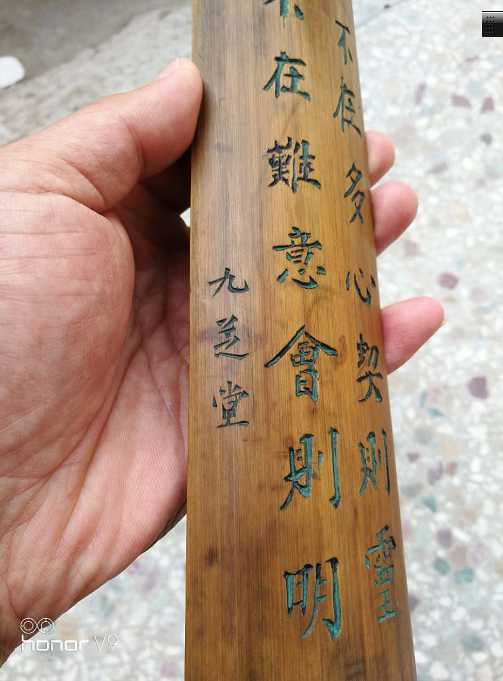 不多心契則靈
不在難意會則明
九芝堂
honor V9